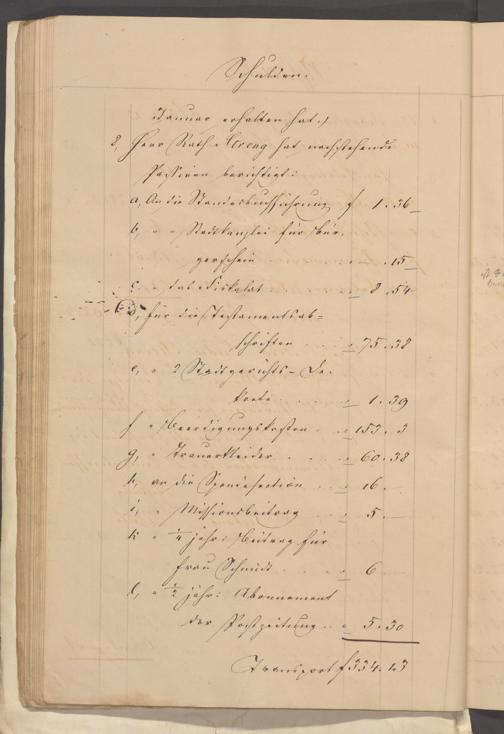 Schulden.
Januar erhalten hat.)
2, Herr Rath Lorenz hat nachstehende
Passiven berichtigt:
a, An die Standesbuchführung f 1.36
b, " " Stadtkanzlei für Bür-
gerschein " - . 15
c " das Fiskalat " 8 . 54
d, für die Testamentsab-
schriften " 75.38
e, " 2 Stadtgerichts-De-
krete " 1.39
f " Beerdigungskosten " 153.3
g, " Trauerkleider " 60.38
h, an die Spendesection " 16 . -
i, " Missionsbeitrag " 5 . -
k " 1/4 jähr: Beitrag für
Frau Schmidt " 6
l, " 1/2 jähr: Abonnement
der Postzeitung " 5.30
Transport f 334.13